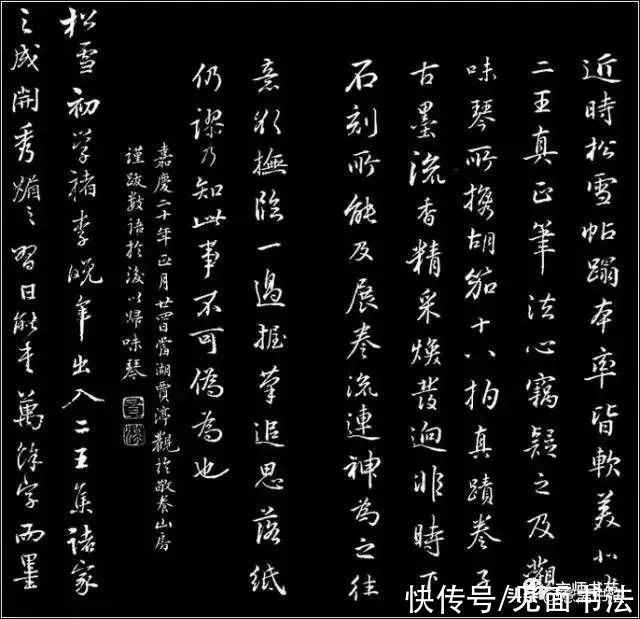 近時松雪帖蹋本率皆軟美非
二王真正筆法心竊疑之及觀
味琴所攜胡笳十八拍真蹟卷子
古墨流香精采煥發迥非時下
石刻所能及展卷流連神為之往
意欲撫臨一過握筆追思落紙
仍謬乃知此事不可偽為也
嘉慶二十年正月廿四日當湖賈淳觀於敬養山房
謹跋數語於後以歸味琴
松雪初學褚李晚年出入二王集諸家
之成開秀媚之習日能書萬餘字而墨
快传号/见面书法